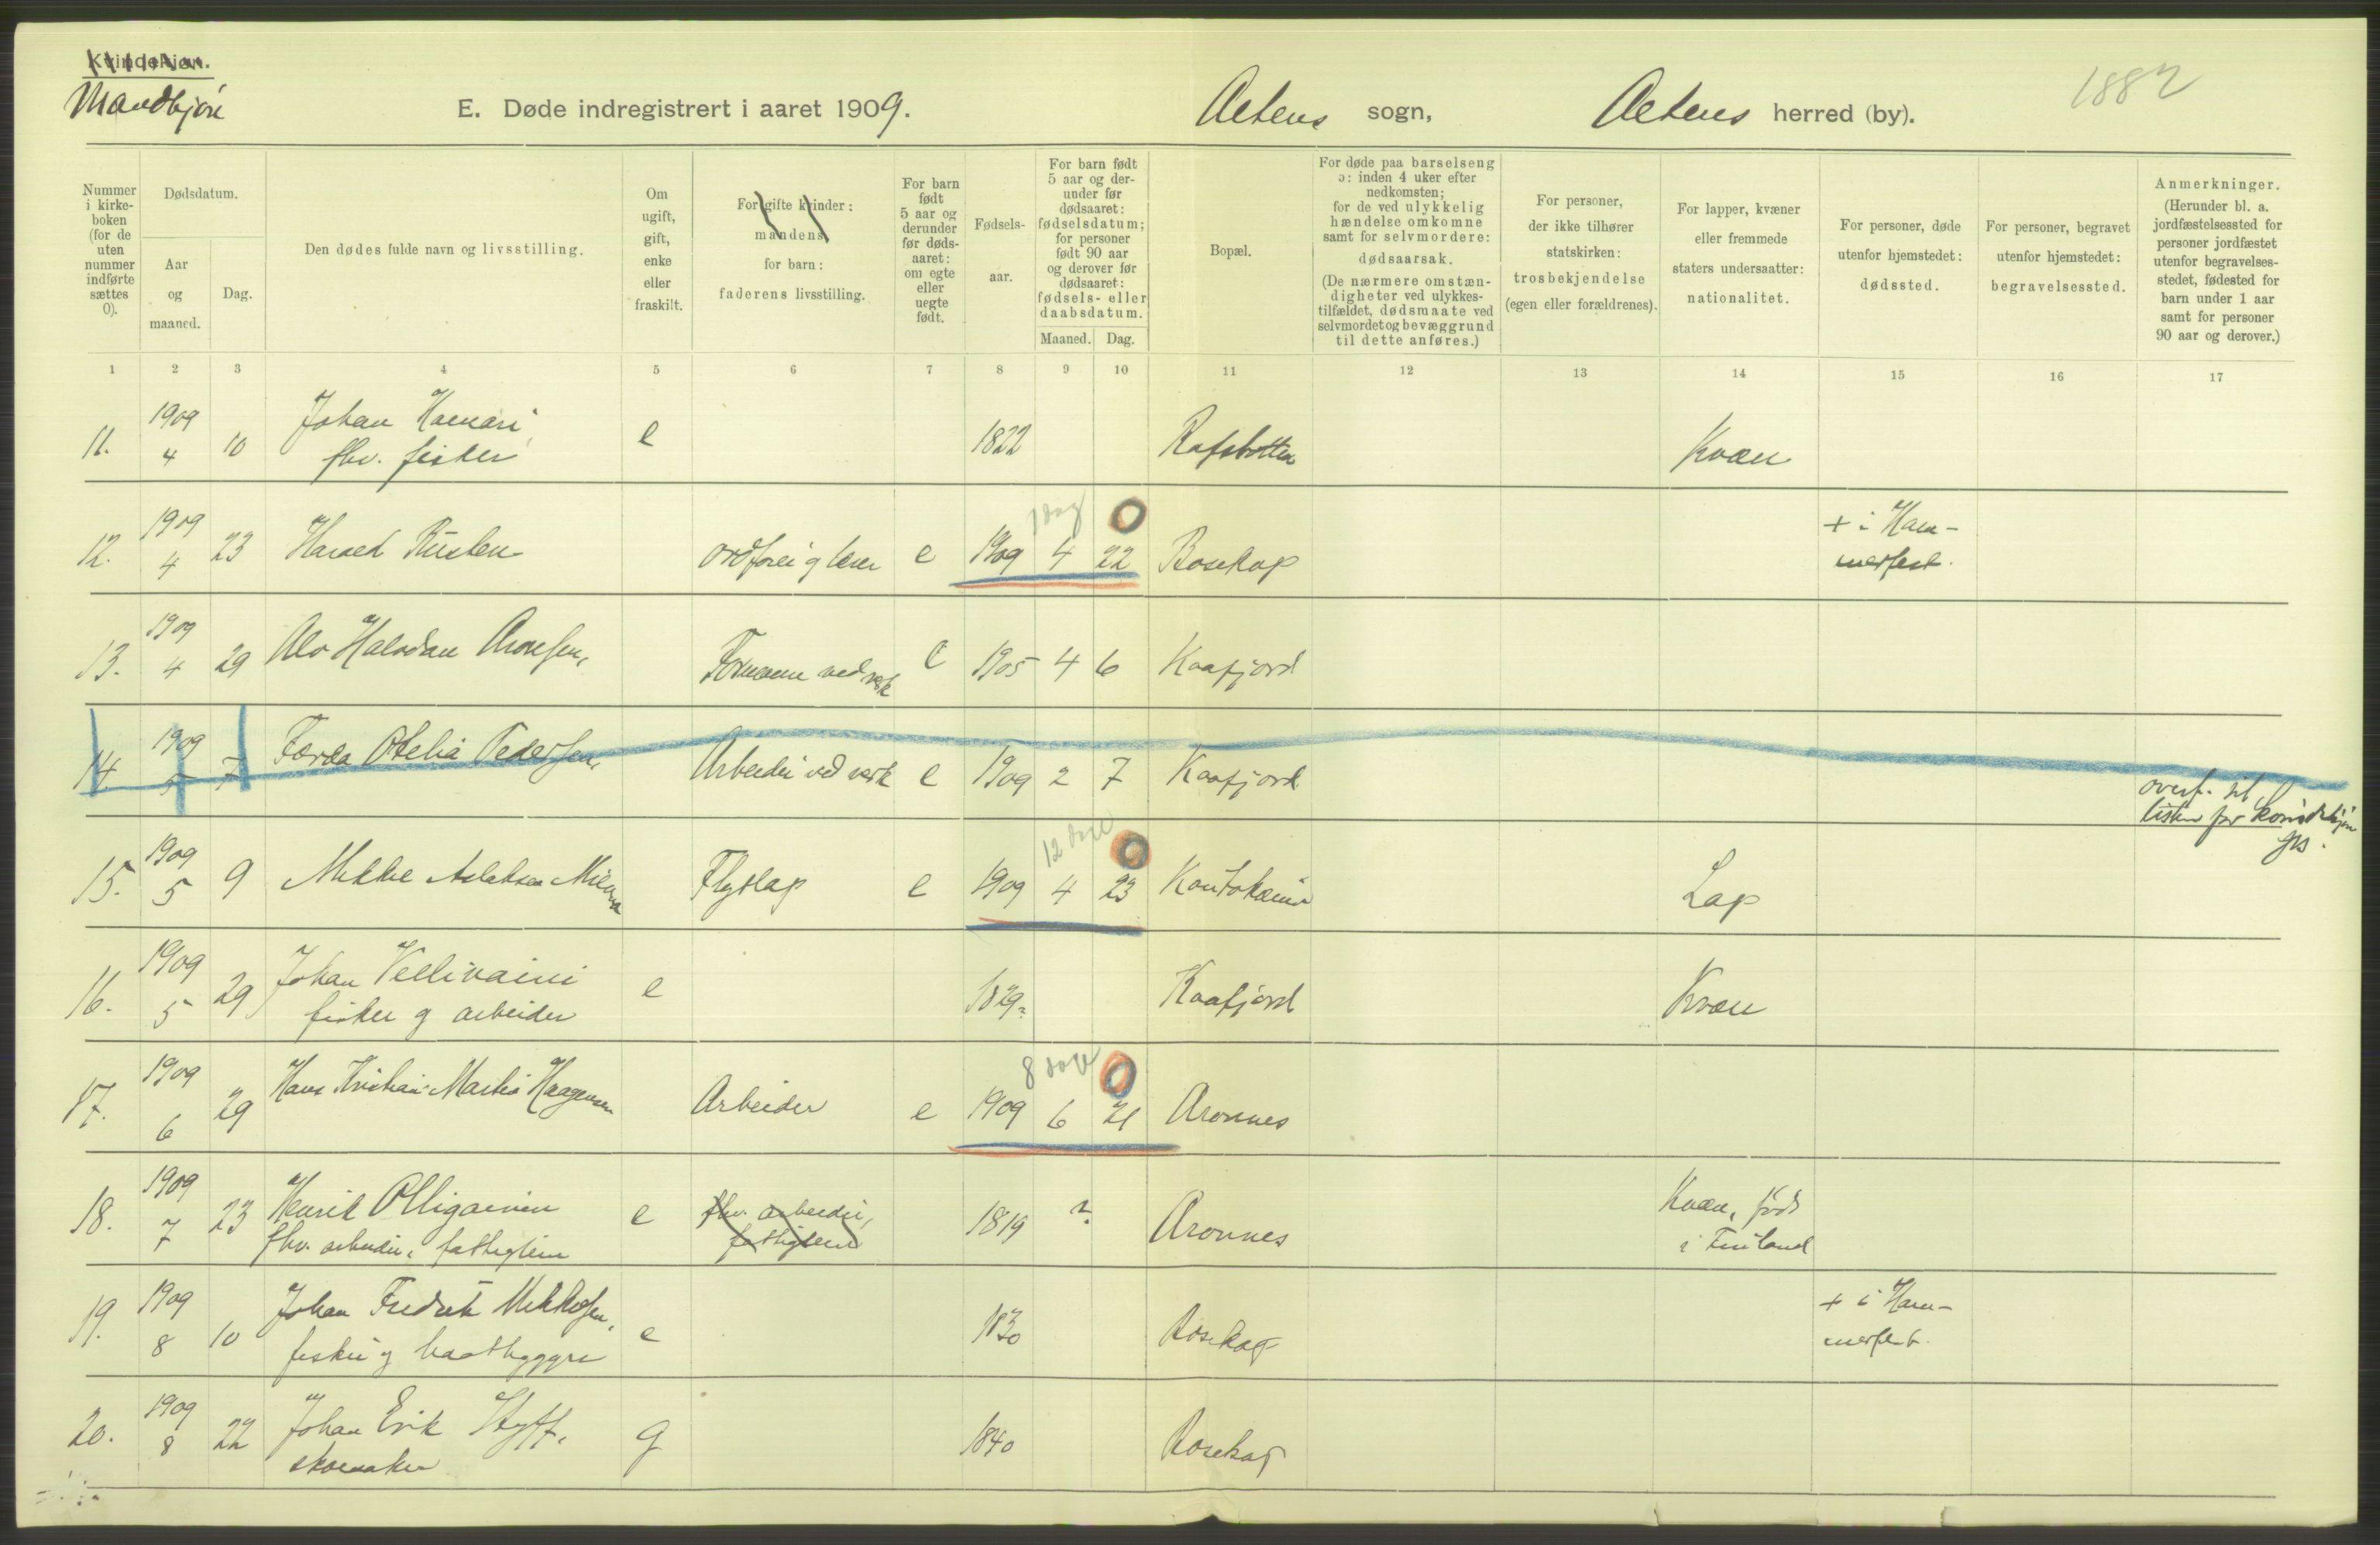 Kvindekjøn.
Mandkjøn
E. Døde indregistrert i aaret 1909.
Altens sogn,
Altens herred (by).
1882
Nummer i kirke- boken (for de uten nummer indførte sættes 0).
Dødsdatum.
Aar og maaned.
Dag.
Den dødes fulde navn og livsstilling.
Om ugift, gift, enke eller fraskilt.
For gifte kvinder: mandens, for barn: faderens livsstilling.
For barn født 5 aar og derunder før døds- aaret: om egte eller uegte født.
Fødsels- aar.
For barn født 5 aar og der- under før dødsaaret: fødselsdatum; for personer født 90 aar og derover før dødsaaret: fødsels- eller daabsdatum.
Maaned. Dag.
Bopæl.
For døde paa barselseng ɔ: inden 4 uker efter nedkomsten; for de ved ulykkelig hændelse omkomne samt for selvmordere: dødsaarsak. (De nærmere omstæn- digheter ved ulykkes- tilfældet, dødsmaate ved selvmordet og bevæggrund til dette anføres.)
For personer, der ikke tilhører statskirken: trosbekjendelse (egen eller forældrenes).
For lapper, kvæner eller fremmede staters undersaatter: nationalitet.
For personer, døde utenfor hjemstedet: dødssted.
For personer, begravet utenfor hjemstedet: begravelsessted.
Anmerkninger. (Herunder bl. a. jordfæstelsessted for personer jordfæstet utenfor begravelses- stedet, fødested for barn under 1 aar samt for personer 90 aar og derover.)
1 2 3 4 5 6 7 8 9 10 11 12 13 14 15 16 17
11. 1909 4 10 Johan
fhv. fisker e 1822 Rafsbotten Kvæn
12. 1909 4 23 e 1909 4 22 Bosekop + i Ham-
merfest.
1 dag 0
13. 1909 4 29 Halvdan Aronsen, Formann ved verk e 1905 4 6 Kaafjord
14. 1909 5 7 Otelia Pedersen, Arbeider ved verk e 1909 2 7 Kaafjord
overf. til
listen for kvindekjøn
15. 1909 5 9 Mikkel Aslaksen Flytlap e 1909 4 23 Kautokeino Lap
12 dage 0
16. 1909 5 29 Johan
fisker og arbeider e 1829 Kaafjord Kvæn
17. 1909 6 29 Hans Kristian Haagensen Arbeider e 1909 6 21 Aronnes
8 dage 0
18. 1909 7 23 Henrik
fhv. arbeider, fattiglem e fhv. arbeider, fattiglem 1819 ? Aronnes Kvæn, født
i Finland
19. 1909 8 10 Johan Fredrik Mikkelsen,
fisker og baatbygger e 1830 Bosekop + i Ham-
merfest.
20. 1909 8 22 Johan Erik
skomaker g 1840 Bosekop